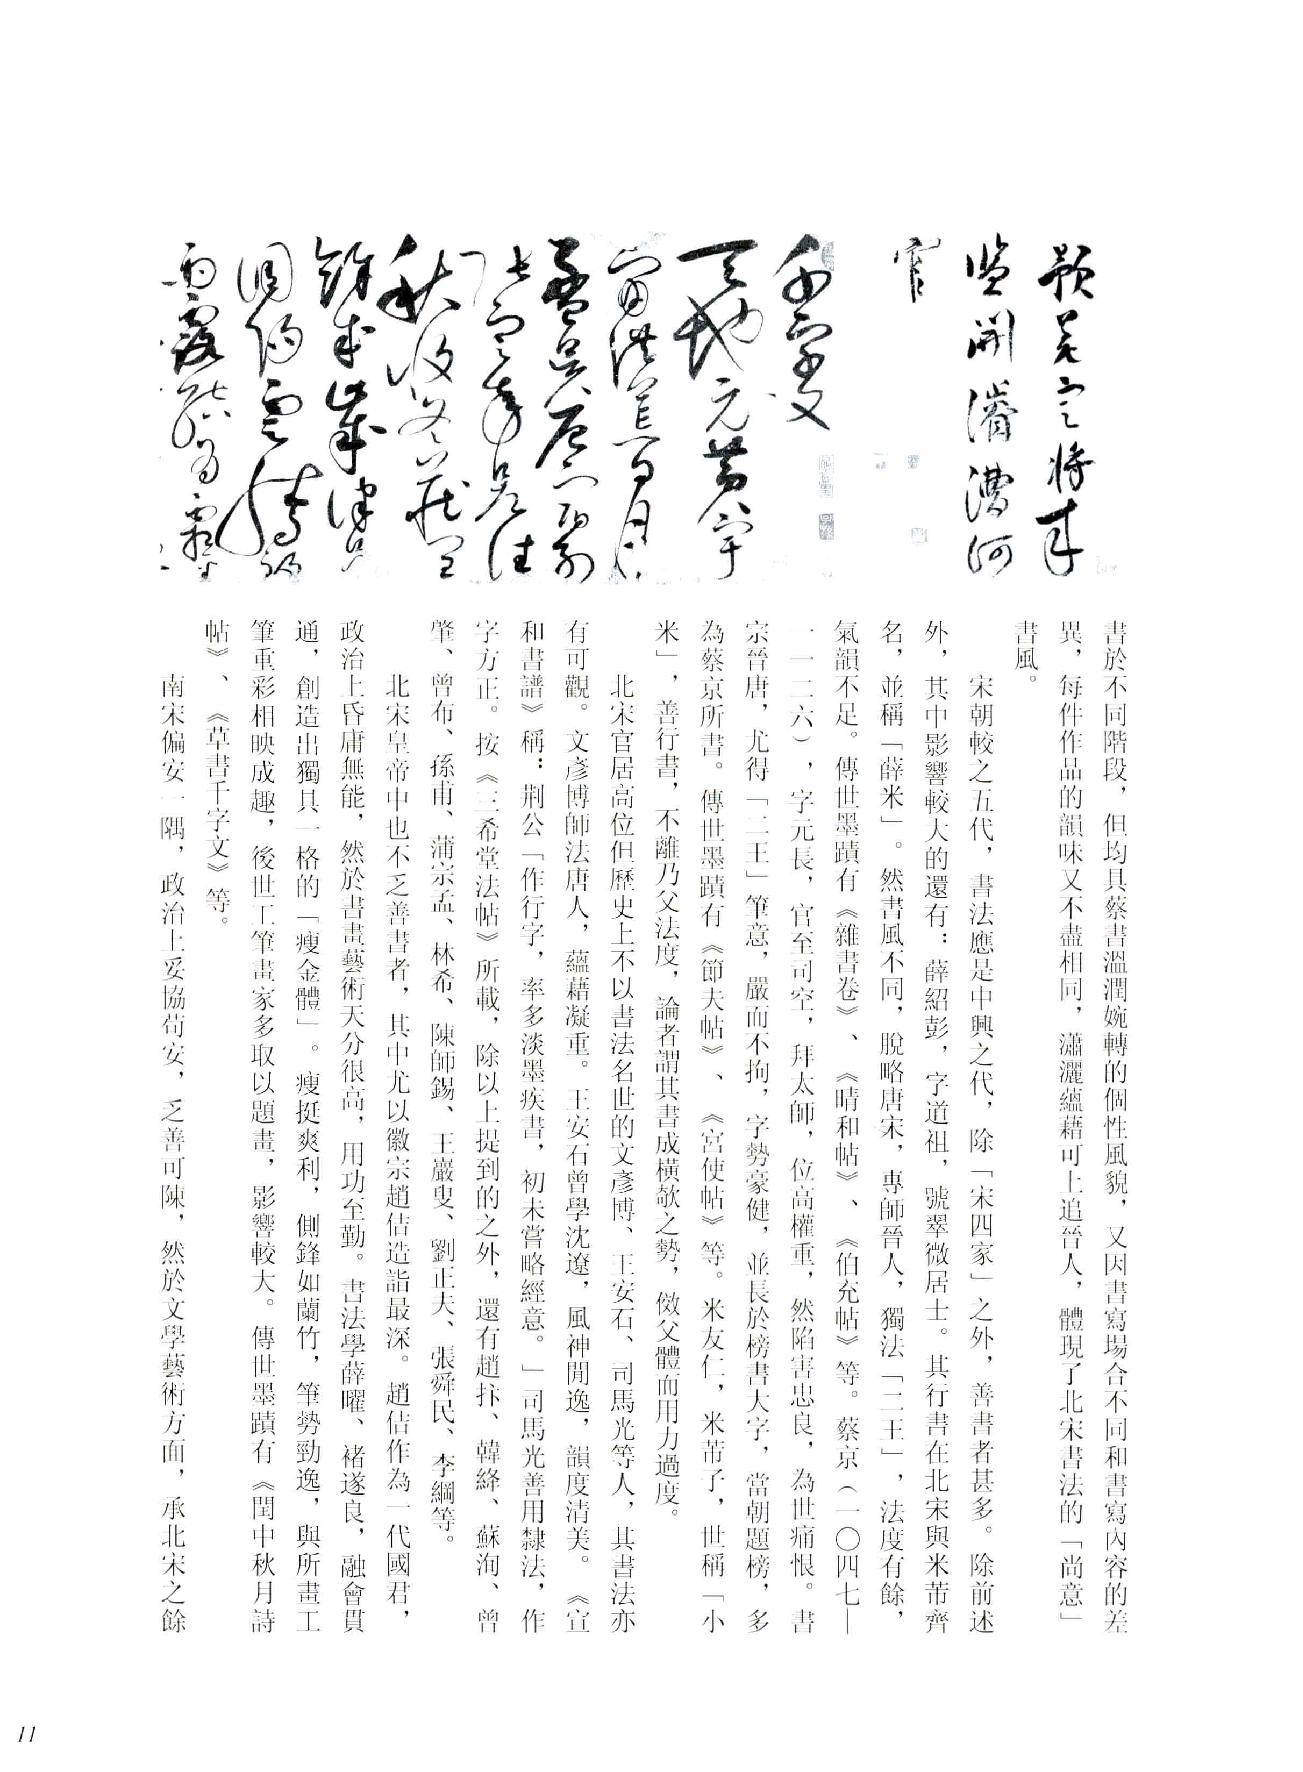 千字文
天地元黃宇
書於不同階段，但均具蔡書溫潤婉轉的個性風貌，又因書寫場合不同和書寫內容的差
異，每件作品的韻味又不盡相同，瀟灑蘊藉可上追晉人，體現了北宋書法的「尚意」
書風。
宋朝較之五代，書法應是中興之代，除「宋四家」之外，善書者甚多。除前述
外，其中影響較大的還有：薛紹彭，字道祖，號翠微居士。其行書在北宋與米芾齊
名，並稱「薛米」。然書風不同，脫略唐宋，專師晉人，獨法「二王」，法度有餘，
氣韻不足。傳世墨蹟有《雜書卷》、《晴和帖》、《伯充帖》等。蔡京（一〇四七—
一一二六），字元長，官至司空，拜太師，位高權重，然陷害忠良，為世痛恨。書
宗晉唐，尤得「二王」筆意，嚴而不拘，字勢豪健，並長於榜書大字，當朝題榜，多
為蔡京所書。傳世墨蹟有《節夫帖》、《宮使帖》等。米友仁，米芾子，世稱「小
米」，善行書，不離乃父法度，論者謂其書成橫欹之勢，傚父體而用力過度。
北宋官居高位但歷史上不以書法名世的文彥博、王安石、司馬光等人，其書法亦
有可觀。文彥博師法唐人，蘊藉凝重。王安石曾學沈遼，風神閒逸，韻度清美。《宣
和書譜》稱：荆公「作行字，率多淡墨疾書，初未嘗略經意。」司馬光善用隸法，作
字方正。按《三希堂法帖》所載，除以上提到的之外，還有趙抃、韓絳、蘇洵、曾
肇、曾布、孫甫、蒲宗孟、林希、陳師錫、王巖叟、劉正夫、張舜民、李綱等。
北宋皇帝中也不乏善書者，其中尤以徽宗趙佶造詣最深。趙佶作為一代國君，
政治上昏庸無能，然於書畫藝術天分很高，用功至勤。書法學薛曜、褚遂良，融會貫
通，創造出獨具一格的「瘦金體」。瘦挺爽利，側鋒如蘭竹，筆勢勁逸，與所畫工
筆重彩相映成趣，後世工筆畫家多取以題畫，影響較大。傳世墨蹟有《閏中秋月詩
帖》、《草書千字文》等。
南宋偏安一隅，政治上妥協苟安，乏善可陳，然於文學藝術方面，承北宋之餘
11